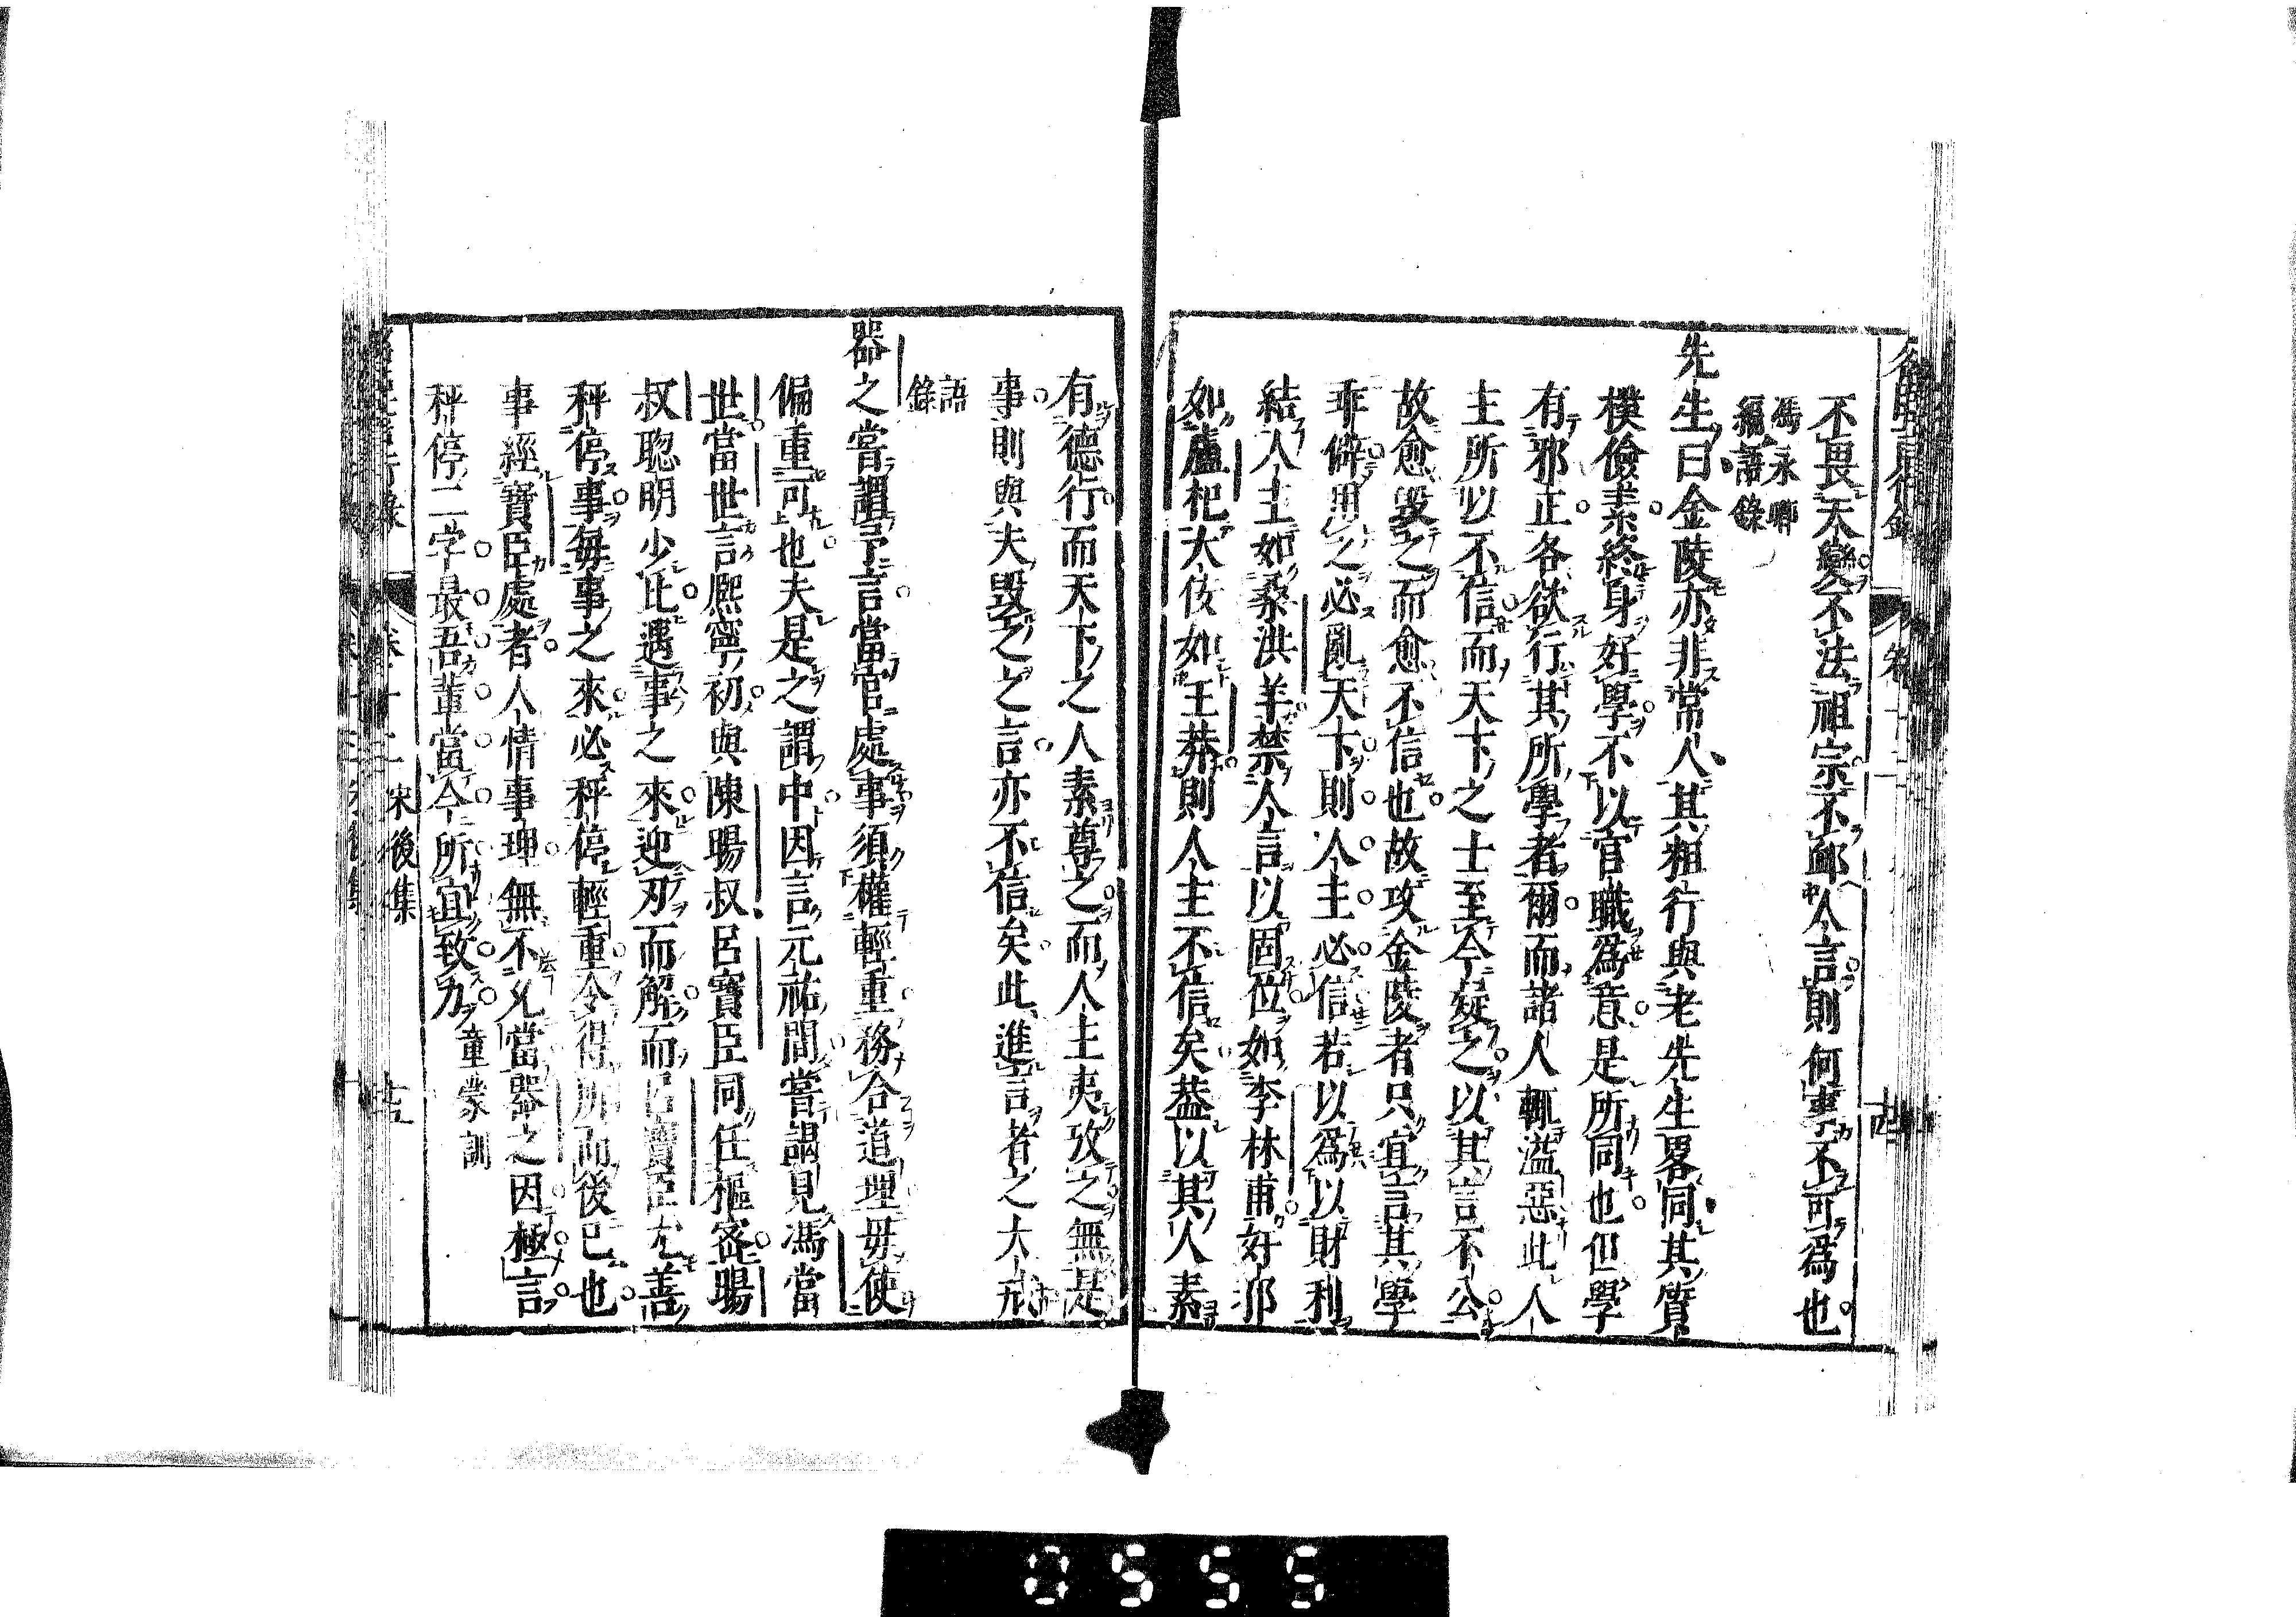 不畏天變不法祖宗不郵人言則何事不可爲也
馮永卿
編語錄
先生曰金陵亦非常人其粗行與老先生畧同其質
樸儉素終身好學不以官職爲意是所同也但學
有邪正各欲行其所學者爾而諸人輒溢惡此人
主所以不信而天下之士至今疑之以其言不公
故愈毀之而愈不信也故攻金陵者只宜言其學
乖僻用之必亂天下則人主必信若以爲以財利
結人主如桑洪羊禁人言以固位如李林甫奸邪
如盧杞大佞如王莽則人主不信矣葢以其人素
有德行而天下之人素尊之而人主夷攷之無是
事則與夫毀之之言亦不信矣此進言者之大戒
語
錄
器之嘗謂予言當官處事須權輕重務合道理毋使
偏重可也夫是之謂中因言元祐間嘗謁見馮當
世當世言熈寧初與陳暘叔呂寶臣同任樞密暘
叔聰明少比遇事之來迎刃而解而呂寶臣尤善
秤停事每事之來必秤停輕重令得所而後已也
事經寶臣處者人情事理無不允當器之因極言
秤停二字最吾輩當今所宜致力 童蒙訓
宋後集
0555